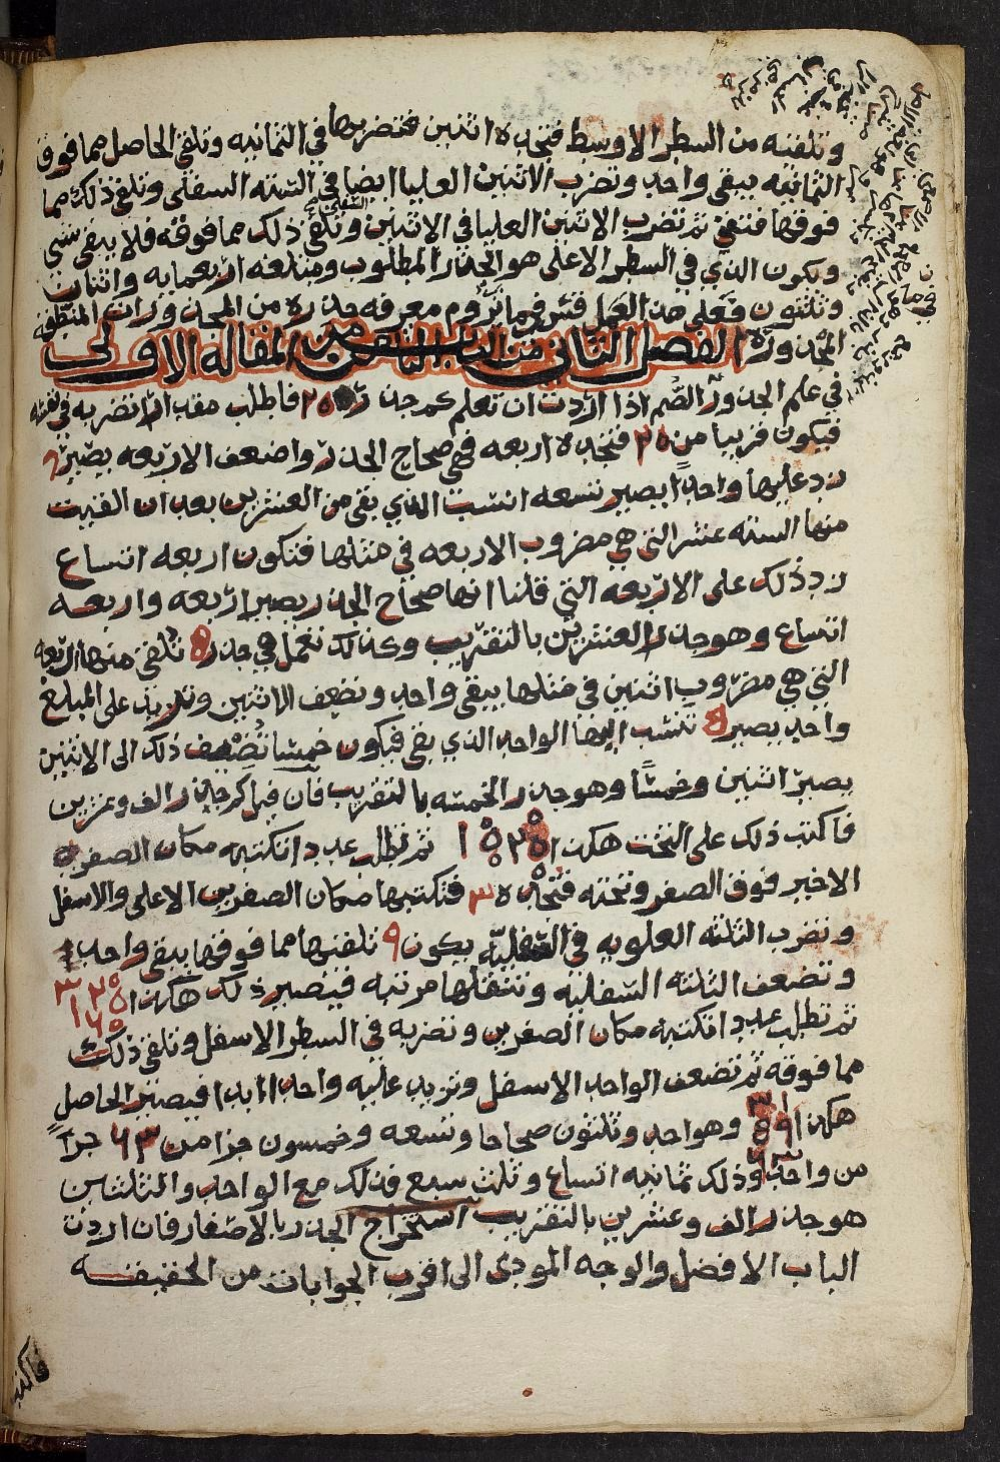 وتلقيه من السطر الاوسط فتجده اثنين فتضربها في الثمانيه وتلقي الحاصل مما فوق
الثمانيه يبقى واحد وتضرب الاثنين العليا ايضا في الستة السفلى وتلقي ذلك مما
فوقها فتفنى ثم تضرب الاثنين العليا في الاثنين السفلى وتلقي ذلك مما فوقه فلا يبقى شي
ويكون الذي في السطر الاعلى هو الجذر المطلوب ومبلغه اربعمايه واثنان
وثلثون فعلى هذا العمل فقس فيما تروم معرفه جذره من المجذورات المنطقة
المجذوره الفصل الثاني من الباب الثامن من المقاله الاولى
في علم الجذور الصم اذا اردت ان تعلم كم جذر ٢٥ فاطلب مقدارا تضربه في نفسه
فيكون قريبا من ٢٥ فتجده اربعه فهي صحاح الجذر واضعف الاربعه يصير
زد عليها واحدا يصير تسعه انسب الذي بقي من العشرين بعد ان القيت
منها السته عشر التي هي مضروب الاربعه في مثلها فتكون اربعه اتساع
زد ذلك على الاربعه التي قلنا انها صحاح الجذر يصير اربعه واربعه
اتساع وهو جذر العشرين بالتقريب وكذلك نعمل في جذر ٥ تلقي منها اربعه
التي هي مضروب اثنين في مثلها يبقى واحد وتضعف الاثنين وتزيد على المبلغ
واحد يصير ٥ تنسب اليها الواحد الذي بقي فيكون خمسا تضيف ذلك الى الاثنين
يصير اثنين وخمسا وهو جذر الخمسه بالتقريب فان قيل كم جذر الف وعشرين
فاكتب ذلك على التخت هكذا ١٥٢٥ ثم تطلب عددا تكتبه مكان الصفر
الاخير فوق الصفر وتحته فتجده ٣ فتكتبها مكان الصفرين الاعلى والاسفل
وتضرب الثلثه العلويه في السفليه يكون ٩ تلقيها مما فوقها يبقى واحد
وتضعف الثلثه السفليه وتنقلها مرتبه فيصير ذلك هكذا
ثم تطلب عددا تكتبه مكان الصفرين وتضربه في السطر الاسفل وتلقي ذلك
مما فوقه ثم تضعف الواحد الاسفل وتزيد عليه واحدا ابدا فيصير الحاصل
هكذا وهو واحد وثلثون صحاحا وتسعه وخمسون جزا من ٦٣ جزا
من واحد وذلك ثمانيه اتساع وثلث سبع فذلك مع الواحد والثلثين
هو جذر الف وعشرين بالتقريب استخراج الجذر بالاصفار فان اردت
الباب الافضل والوجه المودي الى اقرب الجوابات من الحقيقه
فاكتب